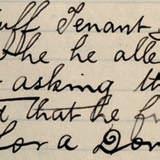 uff Tenant
he he alle
asking th
t that he fr
for a Don